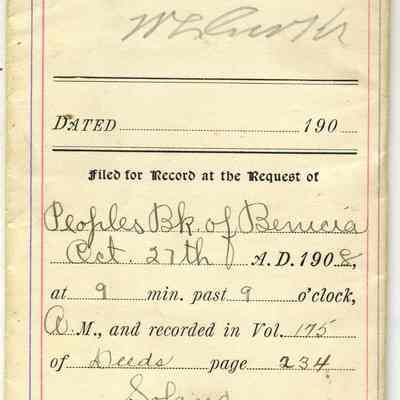 DATED 190
Filed for Record at the Request of
Peoples Bk. of Benicia
Oct. 27th A.D. 1908,
at 9 min. past 9 o'clock,
A M., and recorded in Vol. 175
of Deeds page 234
Solano